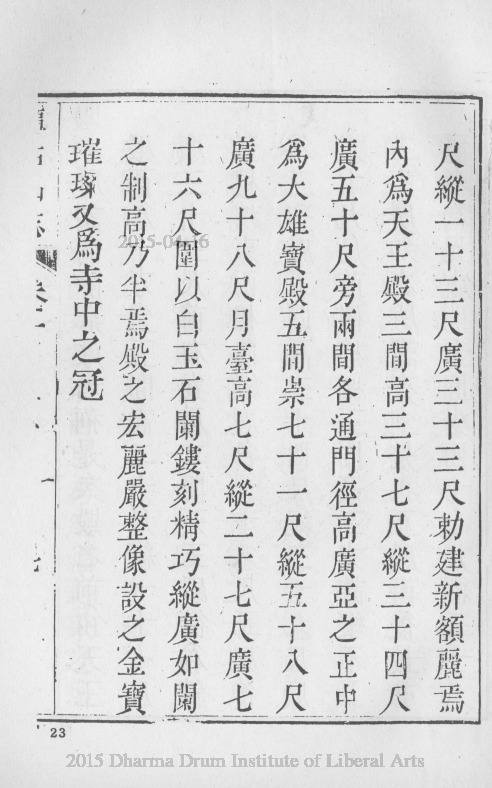 尺縱一十三尺廣三十三尺勅建新額麗焉
內爲天王殿三間高三十七尺縱三十四尺
廣五十尺旁兩間各通門徑高廣亞之正中
爲大雄寶殿五間崇七十一尺縱五十八尺
廣九十八尺月臺高七尺縱二十七尺廣七
十六尺圍以白玉石闌鏤刻精巧縱廣如闌
之制高乃半焉殿之宏麗嚴整像設之金寶
璀璨又爲寺中之冠
23
2015 Dharma Drum Institute of Liberal Arts